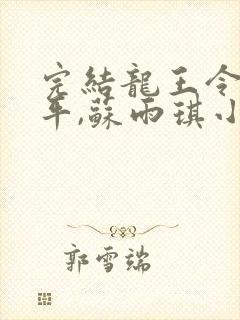 完結龍王令
年,蘇雨琪小
郭雪瑞